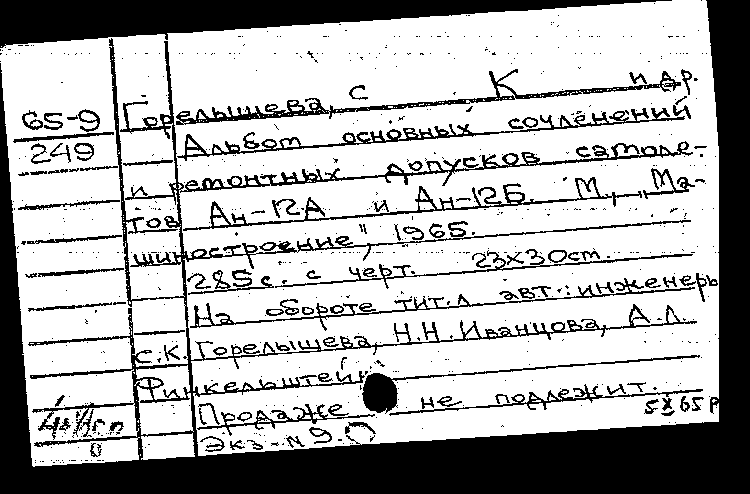 65-9 Горелышева, С К и др.
249 Альбом основных сочленений
и ремонтных допусков самоле-
тов Ан-12А и Ан-12Б. М., „Ма-
шиностроение", 1965.
285 с. с черт. 23х30см.
На обороте тит.л авт.: инженеры
С.К. Горелышева, Н.Н. Иванцова, А.Л.
Финкельштейн
Продаже не подлежит.
5X65р
Экз-N9.